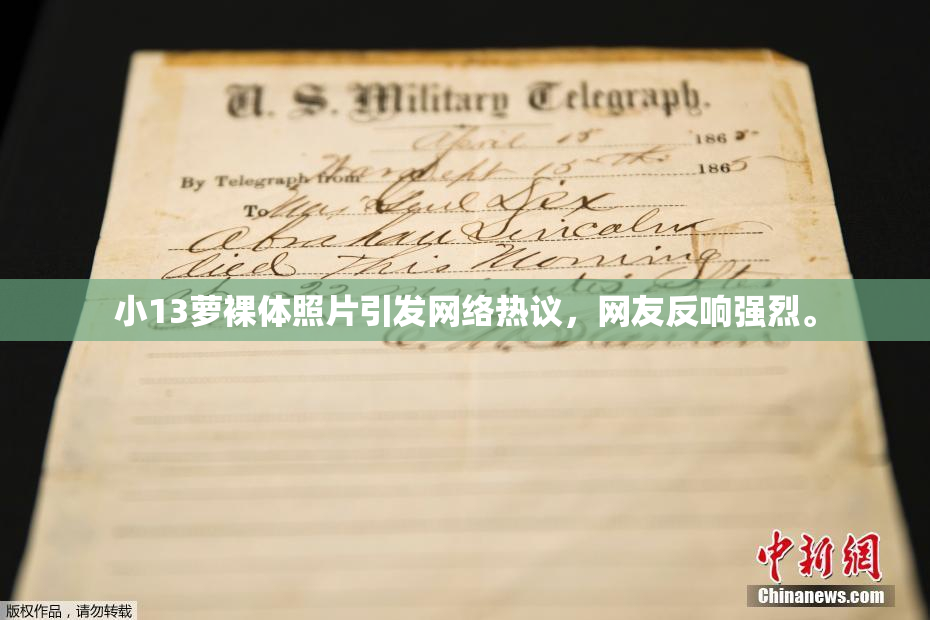 U. S. Military Telegraph.
April 15 1865
By Telegraph from War Dept 15th 1865
To Maj Genl Dix
Abraham Lincoln
died This Morning
at 22 minutes after
小13萝裸体照片引发网络热议，网友反响强烈。
中新网
Chinanews.com
版权作品，请勿转载